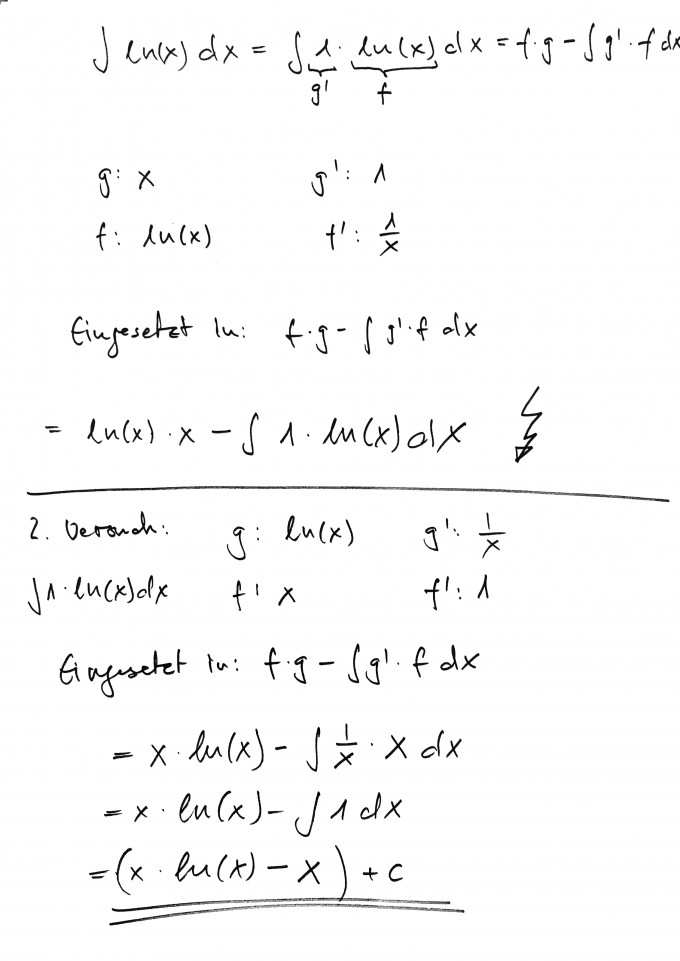 ∫ ln(x) dx = ∫ 1 · ln(x) dx = f·g - ∫ g' · f dx
g' f
g: x g': 1
f: ln(x) f': 1/x
Eingesetzt in: f·g - ∫ g'·f dx
= ln(x) · x - ∫ 1 · ln(x) dx
2. Versuch: g: ln(x) g': 1/x
∫ 1 · ln(x) dx f: x f': 1
Eingesetzt in: f·g - ∫ g' · f dx
= x · ln(x) - ∫ 1/x · x dx
= x · ln(x) - ∫ 1 dx
= (x · ln(x) - x) + c